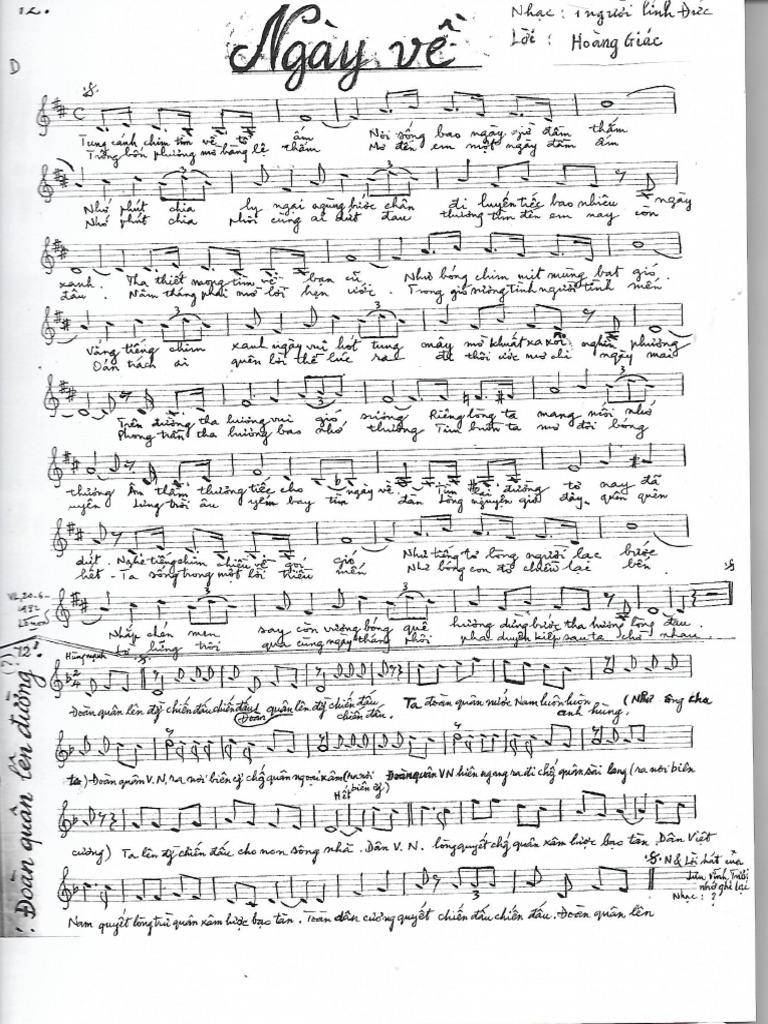 12.
Ngày về
Nhạc : 1 người lính Đức
Lời : Hoàng Giác
D
Tung cánh chim tìm về tổ ấm Nơi sống bao ngày giờ đầm thấm
Trông bốn phương mờ hàng lệ thắm Mơ đến em một ngày đầm ấm
Nhớ phút chia ly ngại ngùng bước chân đi luyến tiếc bao nhiêu ngày
Nhớ phút chia phôi cùng ai dứt đau thương tìm đến em nay còn
xanh. Tha thiết mong tìm về bạn cũ, Như bóng chim mịt mùng bạt gió.
đâu. Năm tháng phai mờ lời hẹn ước. Trong gió sương tình người tình mến
Vẳng tiếng chim xanh ngày vui hót tung mây mờ khuất xa xôi nghìn phương
Oán trách ai quên lời thề lúc ra đi thôi ước mơ chi ngày mai
Trên đường tha hương vui gió sương Riêng lòng ta mang nỗi nhớ
Phong trần tha hương bao nhớ thương Tim buồn ta mơ đôi bóng
thương Âm thầm thương tiếc cho ngày về Tìm lại đường tơ nay đã
uyên Lưng trời âu yếm bay tìm đàn Lòng nguyện giờ đây quên quên
dứt. Nghe tiếng chim chiều về gọi gió Như tiếng tơ lòng người lạc bước
hết - Ta sống trong một lời thiếu mến Như bóng con đò chiều lại bến
Nhấp chén men say còn vương bóng quê hương dừng bước tha hương lòng đau.
tơ lưng trời qua cùng ngày tháng phôi pha duyên kiếp sau ta chờ nhau.
VL, 20-6-
1992
12!
(?)
: Đoàn quân lên đường
Hùng mạnh
Đoàn quân lên đg̀ chiến đấu chiến đấu! quân lên đg̀ chiến đấu Ta đoàn quân nước Nam luôn luôn (Như ông cha
(Đoàn) chiến đấu. anh hùng.
ta) Đoàn quân V.N. ra nơi biên cg̀ chống quân ngoại xâm (ra nơi Đoàn quân VN hiên ngang ra đi chống quân sài lang (ra nơi biên
biên cg̀)
Hết
cương) Ta lên đg̀ chiến đấu cho non sông nhà. Dân V.N. lòng quyết chống quân xâm lược bạo tàn. Dân Việt
N & Lời hát của
Lưu Vĩnh Triều
nhớ ghi lại
Nhạc : ?
Nam quyết lòng trừ quân xâm lược bạo tàn. Toàn dân cương quyết chiến đấu chiến đấu. Đoàn quân lên